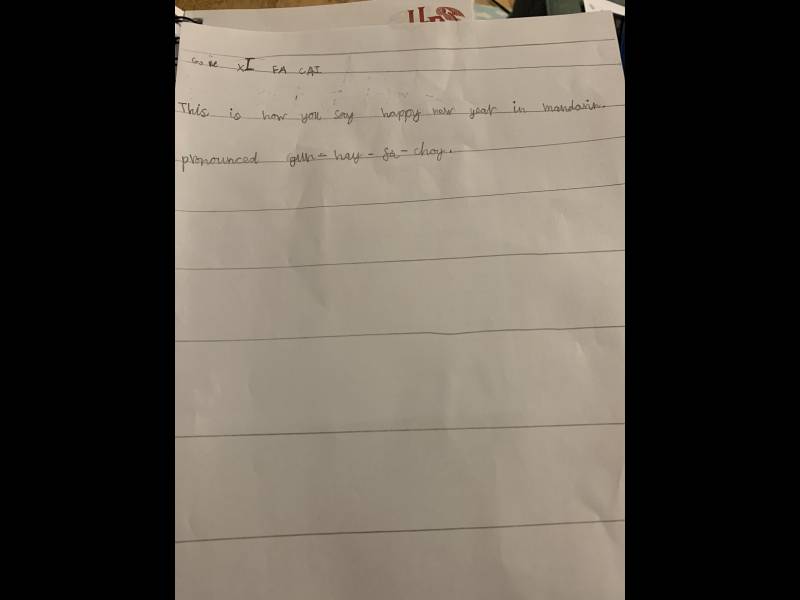 XI FA CAI
This is how you say happy new year in mandarin.
pronounced gun - hay - fa - choy.